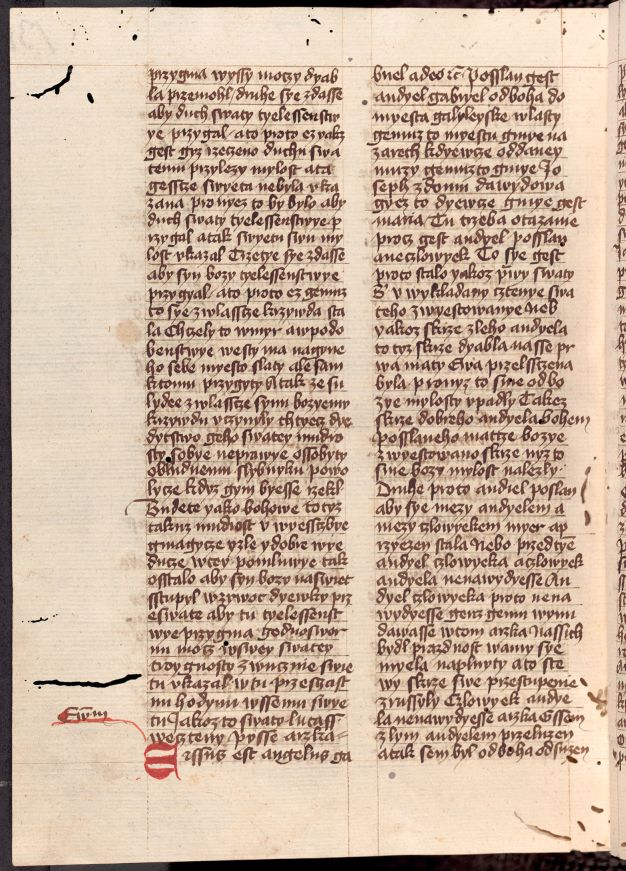 przygma wyssy moczy dyab
la przemohl / druhe sye zdasse
aby duch swaty tyelessenstw
ye przygal / ato proto ez yakz
gest gyz rzeczeno duchu swa
temu przylezy mylost ata
gessze swyeta nebyla vka
zana pronyez to by bylo aby
duch swaty tyelessenstwye p
rzygal atak swyetu swu my
lost vkazal Trzetye sye zdasse
aby syn bozy tyelessenstwye
przygyal / ato proto ez gemuz
to sye zwlassze krzywda sta
la Chczely to wmyr awpodo
benstwye westy ma nagyne
ho sebe myesto slaty ale sam
ktomu przygyty Atak ze su
lydee zwlassze synu bozyemu
krzywdu vczynyly chtyecz dye
dyczstwo geho swatey mudro
sty sobye neprawye ossobyty
obludnemu slybuyku powo
lycze kdyz gym byesse rzekl
Budete yako bohowe totyz
takuz mudrost v wyessczbye
gmagycze yzle ydobre wye
ducze wtey pomluwye tak
ostalo aby syn bozy naswiet
sstupyl wzywot dyewky prz
eswate aby tu tyelessenst
wye przygma gednoswor
nu mocz wssyey swatey
trogynosty zwuczenie swie
tu vkazal wtu przesczast
nu hodynu wssemu swye
tu Jakoz to swaty lucass
weczteny pysse arzka
Ewm
Missus est angelus ga
briel a deo rc Posslan gest
andyel gabryel odboha do
myesta galyleyske wlasty
gemuz to myestu gmye na
zareth kdyewcze oddaney
muzy gemuzto gmye Jo
seph zdomu dawydowa
gyez to dyewcze gmye gest
maria Tu trzeba otazanie
procz gest andyel posslan
aneczlowyek To sye gest
proto stalo yakoz prwy swaty
B v wykladany cztenye swa
teho zwyestowanye Neb
yakoz skrze zleho andyela
totyz skrze dyabla nasse pr
wa maty Ewa przelsszena
byla pronyz to sme odbo
zye mylosty vpadly Takez
skrze dobreho andyela bohem
posslaneho matcze bozye
zwyestowano skrze nyz to
sme bozy mylost nalezly
Druhe proto andiel poslan
aby sye mezy andyelem a
mezy czlowyekem myer ap
rzyezen stala Nebo przedtye
andyel czlowyeka aczlowyek
andyela nenawydyesse An
dyel czlowyeka proto nena
wydyesse genz gemu wynu
dawasse wtom arzka Nassich
bydl prazdnost wamy sye
myela naplnyty ato ste
wy skrze swe przestupenie
zrussyly Czlowyek andye
la nenawydyesse arzka Gssem
zlym andyelem przeluzen
atak sem byl odboha odsuzen